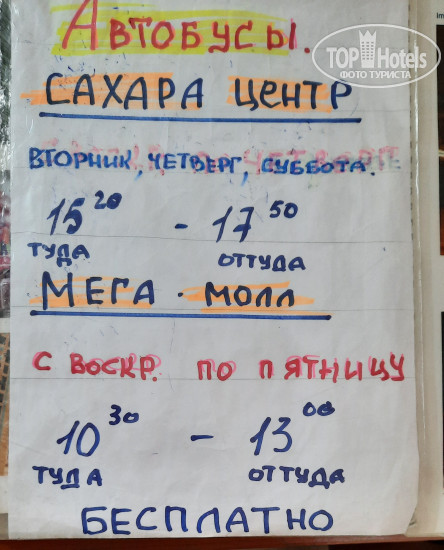 АВТОБУСЫ.
TOP Hotels
ФОТО ТУРИСТА
САХАРА ЦЕНТР
ВТОРНИК, ЧЕТВЕРГ, СУББОТА.
15 20 - 17 50
ТУДА ОТТУДА
МЕГА - МОЛЛ
С ВОСКР. ПО ПЯТНИЦУ
10 30 - 13 00
ТУДА ОТТУДА
БЕСПЛАТНО